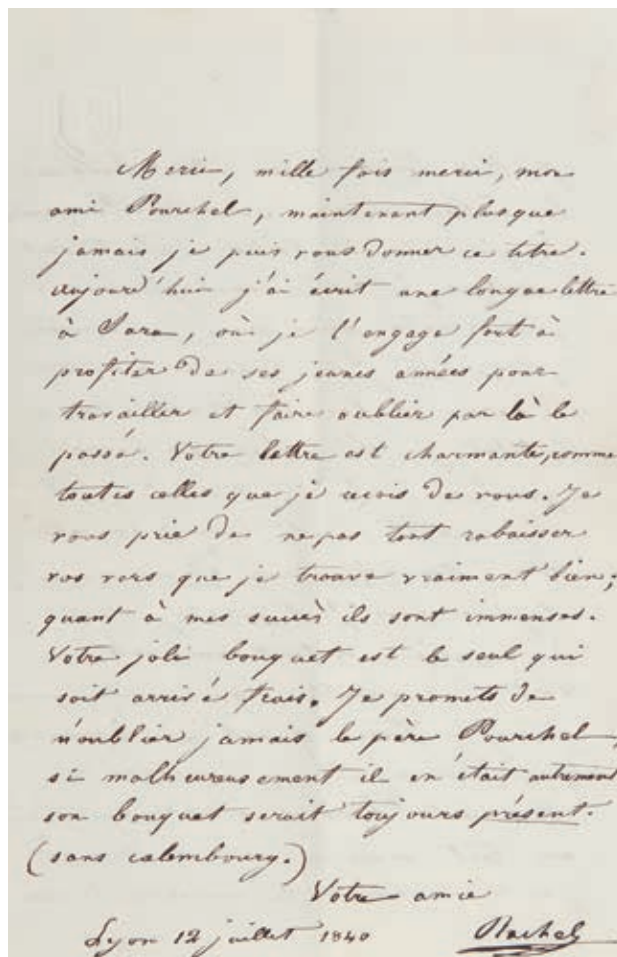 Merci, mille fois merci, mon
ami Pourchel, maintenant plus que
jamais je puis vous donner ce titre.
aujourd'hui j'ai écrit une longue lettre
à Sara, où je l'engage fort à
profiter de ses jeunes années pour
travailler et faire oublier par là le
passé. Votre lettre est charmante, comme
toutes celles que je reçois de vous. Je
vous prie de ne pas tant rabaisser
vos vers que je trouve vraiment bien;
quant à mes succès ils sont immenses.
Votre joli bouquet est le seul qui
soit arrivé frais. Je promets de
n'oublier jamais le père Pourchel,
si malheureusement il en était autrement
son bouquet serait toujours présent.
(sans calembourg.)
Votre amie
Lyon 12 juillet 1840 Rachel